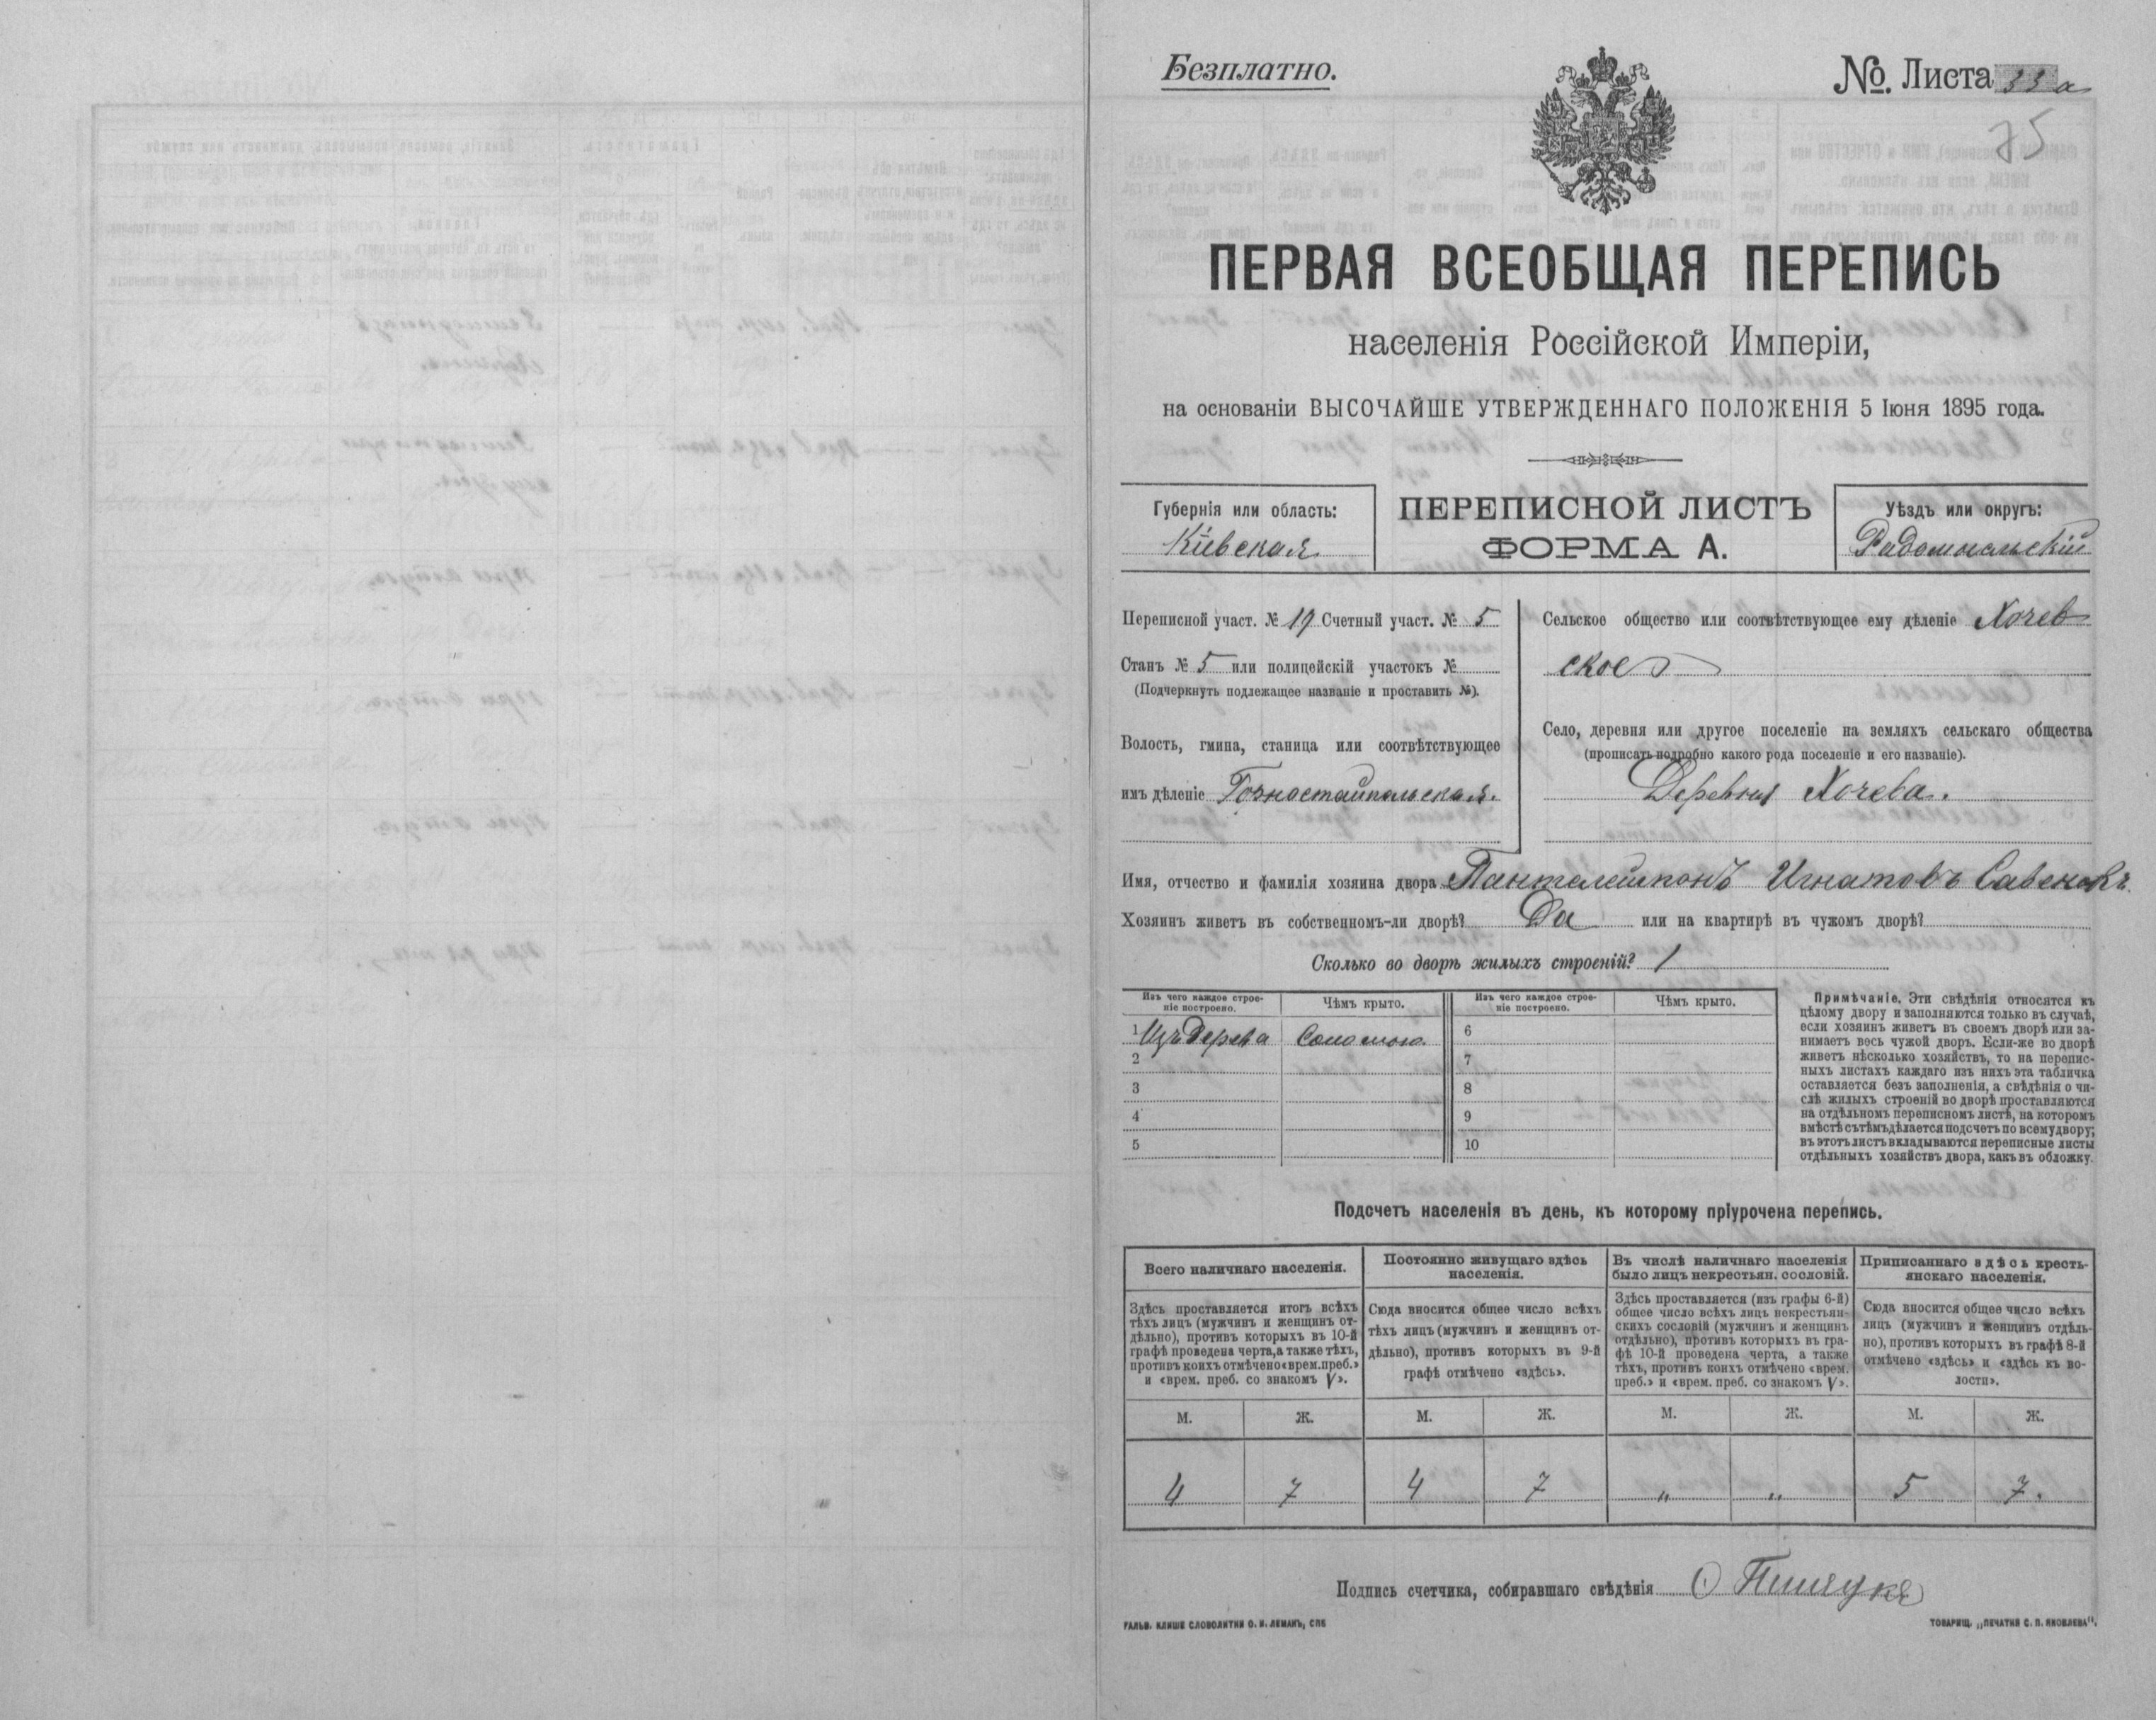 Безплатно.
№. Листа 33 а
75
ПЕРВАЯ ВСЕОБЩАЯ ПЕРЕПИСЬ
населенія Россійской Имперіи,
на основаніи ВЫСОЧАЙШЕ УТВЕРЖДЕННАГО ПОЛОЖЕНІЯ 5 Іюня 1895 года.
Губернія или область:
Кіевская
ПЕРЕПИСНОЙ ЛИСТЪ
ФОРМА А.
Уѣздъ или округъ:
Радомысльскій
Переписной участ. № 19 Счетный участ. № 5
Станъ № 5 или полицейскій участокъ №
(Подчеркнуть подлежащее названіе и проставить №).
Волость, гмина, станица или соотвѣтствующее
имъ дѣленіе Горностайпольская.
Сельское общество или соотвѣтствующее ему дѣленіе Хочев
ское
Село, деревня или другое поселеніе на земляхъ сельскаго общества
(прописать подробно какого рода поселеніе и его названіе).
Деревня Хочева.
Имя, отчество и фамилія хозяина двора Панталеймонъ Игнатовъ Савенокъ
Хозяинъ живетъ въ собственномъ-ли дворѣ? Да или на квартирѣ въ чужомъ дворѣ?
Сколько во дворѣ жилыхъ строеній? 1
Изъ чего каждое строе-
ніе построено.
Чѣмъ крыто.
Изъ чего каждое строе-
ніе построено.
Чѣмъ крыто.
1 Изъ дерева Соломою. 6
2 7
3 8
4 9
5 10
Примѣчаніе. Эти свѣдѣнія относятся къ
цѣлому двору и заполняются только въ случаѣ,
если хозяинъ живетъ въ своемъ дворѣ или за-
нимаетъ весь чужой дворъ. Если-же во дворѣ
живетъ нѣсколько хозяйствъ, то на перепис-
ныхъ листахъ каждаго изъ нихъ эта табличка
оставляется безъ заполненія, а свѣдѣнія о чи-
слѣ жилыхъ строеній во дворѣ проставляются
на отдѣльномъ переписномъ листѣ, на которомъ
вмѣстѣ съ тѣмъ дѣлается подсчетъ по всему двору;
въ этотъ листъ вкладываются переписные листы
отдѣльныхъ хозяйствъ двора, какъ въ обложку.
Подсчетъ населенія въ день, къ которому пріурочена перепись.
Всего наличнаго населенія.
Здѣсь проставляется итогъ всѣхъ
тѣхъ лицъ (мужчинъ и женщинъ от-
дѣльно), противъ которыхъ въ 10-й
графѣ проведена черта, а также тѣхъ,
противъ коихъ отмѣчено «врем. преб.»
и «врем. преб. со знакомъ V».
Постоянно живущаго здѣсь
населенія.
Сюда вносится общее число всѣхъ
тѣхъ лицъ (мужчинъ и женщинъ от-
дѣльно), противъ которыхъ въ 9-й
графѣ отмѣчено «здѣсь».
Въ числѣ наличнаго населенія
было лицъ некрестьян. сословій.
Здѣсь проставляется (изъ графы 6-й)
общее число всѣхъ лицъ некрестьян-
скихъ сословій (мужчинъ и женщинъ
отдѣльно), противъ которыхъ въ гра-
фѣ 10-й проведена черта, а также
тѣхъ, противъ коихъ отмѣчено «врем.
преб.» и «врем. преб. со знакомъ V».
Приписаннаго здѣсь кресть-
янскаго населенія.
Сюда вносится общее число всѣхъ
лицъ (мужчинъ и женщинъ отдѣль-
но), противъ которыхъ въ графѣ 8-й
отмѣчено «здѣсь» и «здѣсь къ во-
лости».
М. Ж. М. Ж. М. Ж. М. Ж.
4 7 4 7 „ „ 5 7.
Подпись счетчика, собиравшаго свѣдѣнія
ГАЛЬВ. КЛИШЕ СЛОВОЛИТНИ О. И. ЛЕМАНЪ, СПБ
ТОВАРИЩ. „ПЕЧАТНЯ С. П. ЯКОВЛЕВА".